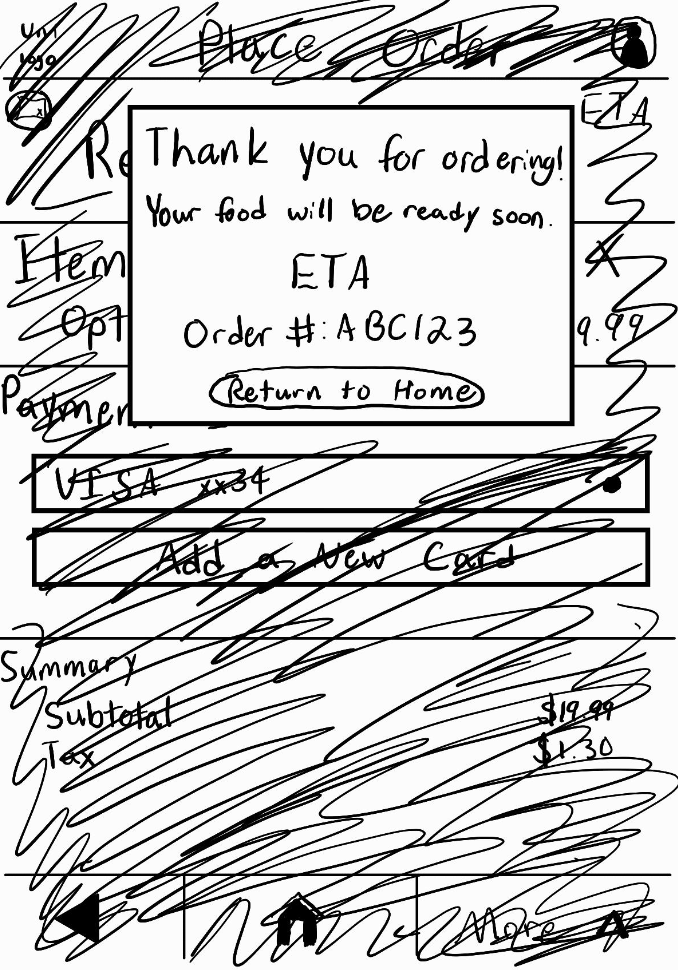 Uni
logo
Place Order
ETA
Re
Thank you for ordering!
Your food will be ready soon.
ETA
Order #: ABC123
Return to Home
Item
X
Opt
9.99
Paymen
VISA xx34
Add a New Card
Summary
Subtotal $19.99
Tax $1.30
More